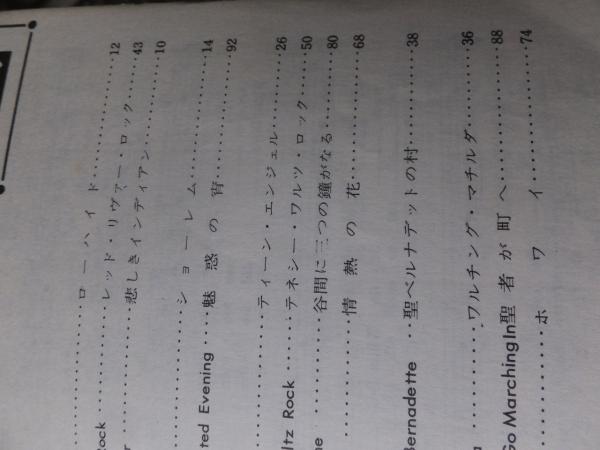 ローハイド 12
Rock レッド・リヴァー・ロック 43
r 悲しきインディアン 10
ショーレム 14
ted Evening 魅惑の宵 92
ティーン・エンジェル 26
ltz Rock テネシー・ワルツ・ロック 50
ne 谷間に三つの鐘がなる 80
情熱の花 68
Bernadette 聖ベルナデットの村 38
a ワルチング・マチルダ 36
Go Marching In 聖者が町へ 88
ホワイ 74